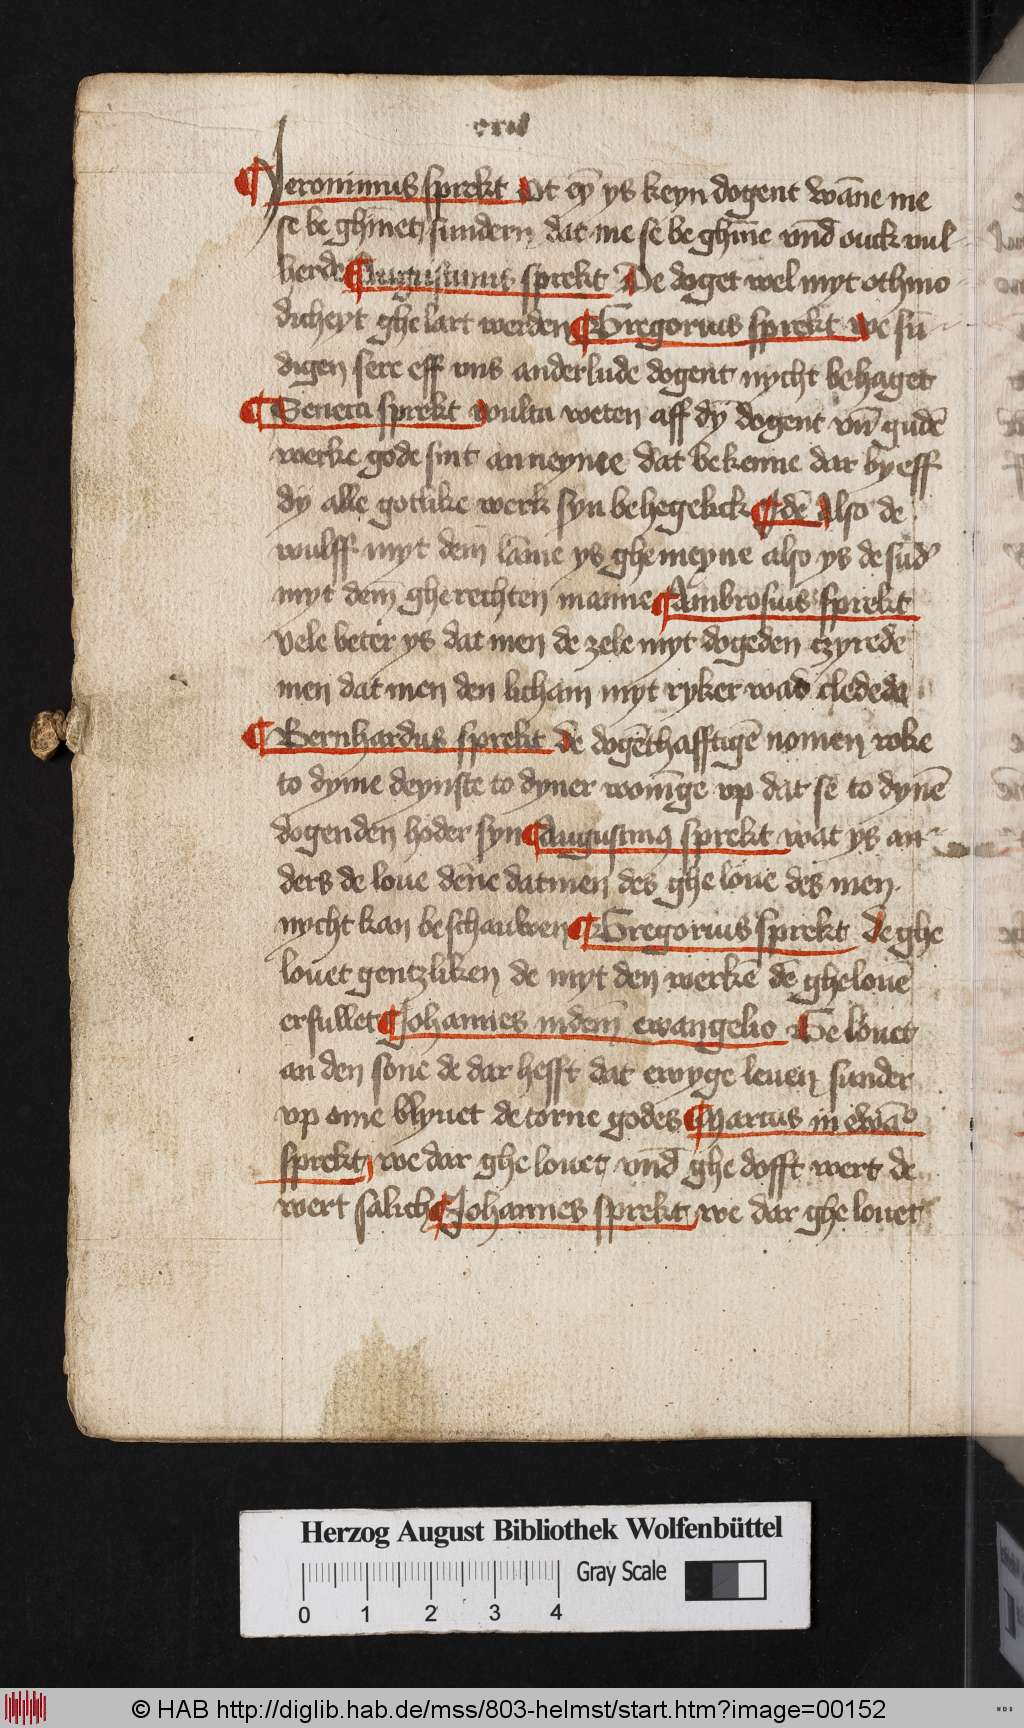 ¶ Jeronimus sprekt Dt en̄ ys keyn dogent wāne me
se be ghīnet sundern dat me se be ghīne vnd̄ ouck vul-
berde ¶ Augustinus sprekt De doget wel myt othmo-
dicheyt ghe lart werden ¶ Gregorius sprekt we sū-
digen sere eff vns anderlude dogent nycht behaget
¶ Seneca sprekt wultu weten aff dy̅ dogent vn̄ gudē
werke gode sint anneyme dat bekenne dar by eff
dy alle gotlike werk syn behegelick ¶ Idē Also de
wulff myt dem̄ lāme ys ghemeyne also ys de sūd'
myt dem̄ gherechten manne ¶ Ambrosius sprekt
vele beter ys dat men de zele myt dogeden czyrede
men dat men den licham myt ryker wad clededa
¶ Bernhardus sprekt de dogēthafftigē nomen roke
to dyme deynste to dyner wonīge vp dat se to dynē
dogenden hoder syn ¶ Augustinꝰ sprekt wat ys an-
ders de loue dēne datmen des ghe loue des men
nycht kan beschauwen ¶ Gregorius sprekt de ghe
louet gentzliken de myt den werkē dē gheloue
erfullet ¶ Johannes indem̄ ewangelio De louet
an den sone de dar hefft dat ewyge leuen sunder
vp ome blyuet de torne godes ¶ Marcus in ewāᵒ
sprekt we dar ghe louet vnd̄ ghe dofft wert de
wert salich ¶ Johannes sprekt we dar ghe louet
Herzog August Bibliothek Wolfenbüttel
Gray Scale
0 1 2 3 4
© HAB http://diglib.hab.de/mss/803-helmst/start.htm?image=00152